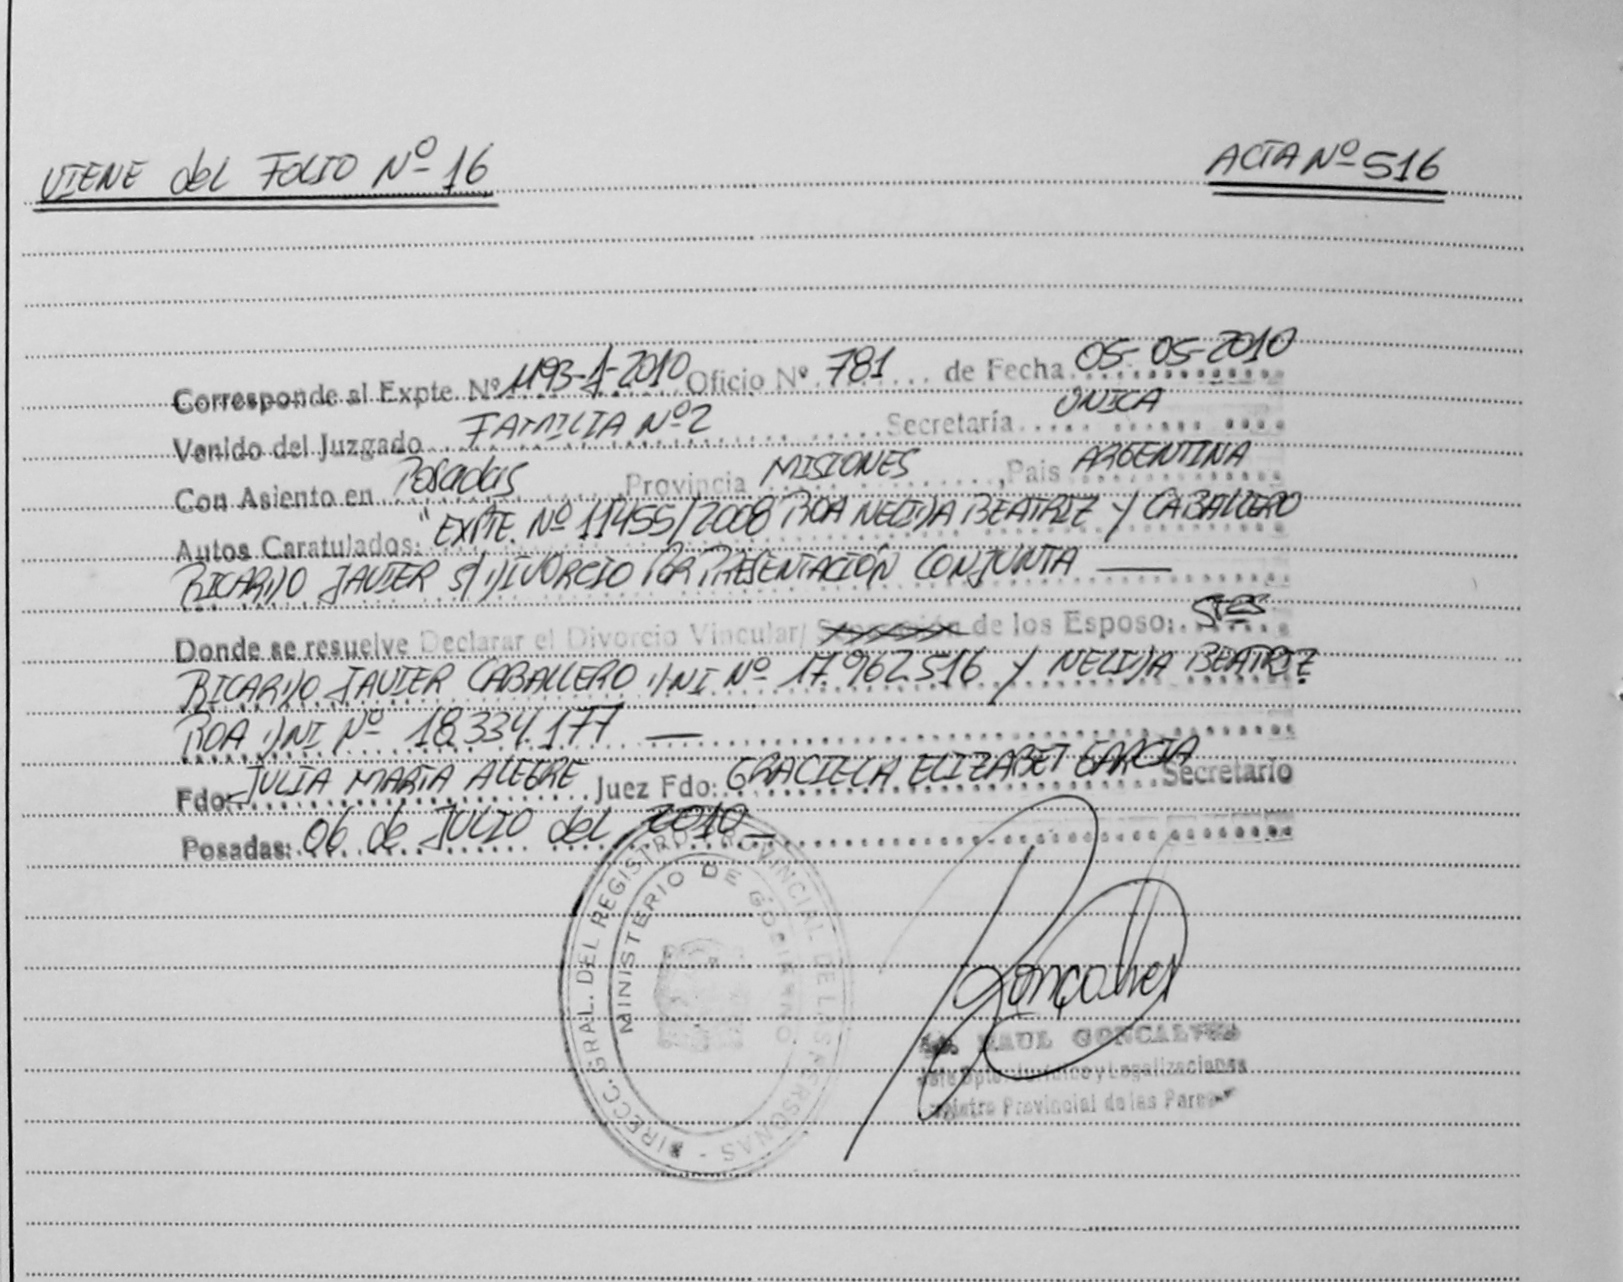 VIENE del FOLIO Nº 16
ACTA Nº 516
Corresponde al Expte. Nº 1193-J-2010 Oficio Nº 781 de Fecha 05-05-2010
Venido del Juzgado FAMILIA Nº 2 Secretaría UNICA
Con Asiento en Posadas Provincia MISIONES, Pais ARGENTINA
Autos Caratulados: "EXPTE. Nº 11455/2008 ROA NELIDA BEATRIZ Y CABALLERO
RICARDO JAVIER S/ DIVORCIO POR PRESENTACIÓN CONJUNTA —
Donde se resuelve Declarar el Divorcio Vincular/ Separación de los Esposo: Sres
RICARDO JAVIER CABALLERO DNI Nº 17.962.516 Y NELIDA BEATRIZ
ROA DNI Nº 18.334.177 —
Fdo: JULIA MARIA ALEGRE Juez Fdo: GRACIELA ELIZABET GARCIA Secretario
Posadas: 06 de JULIO del 2010
DIRECC. GRAL. DEL REGISTRO PROVINCIAL DE LAS PERSONAS -
MINISTERIO DE GOBIERNO
Gonçalves
RAUL GONCALVES
Jefe Dpto. Jurídico y Legalizaciones
Registro Provincial de las Personas